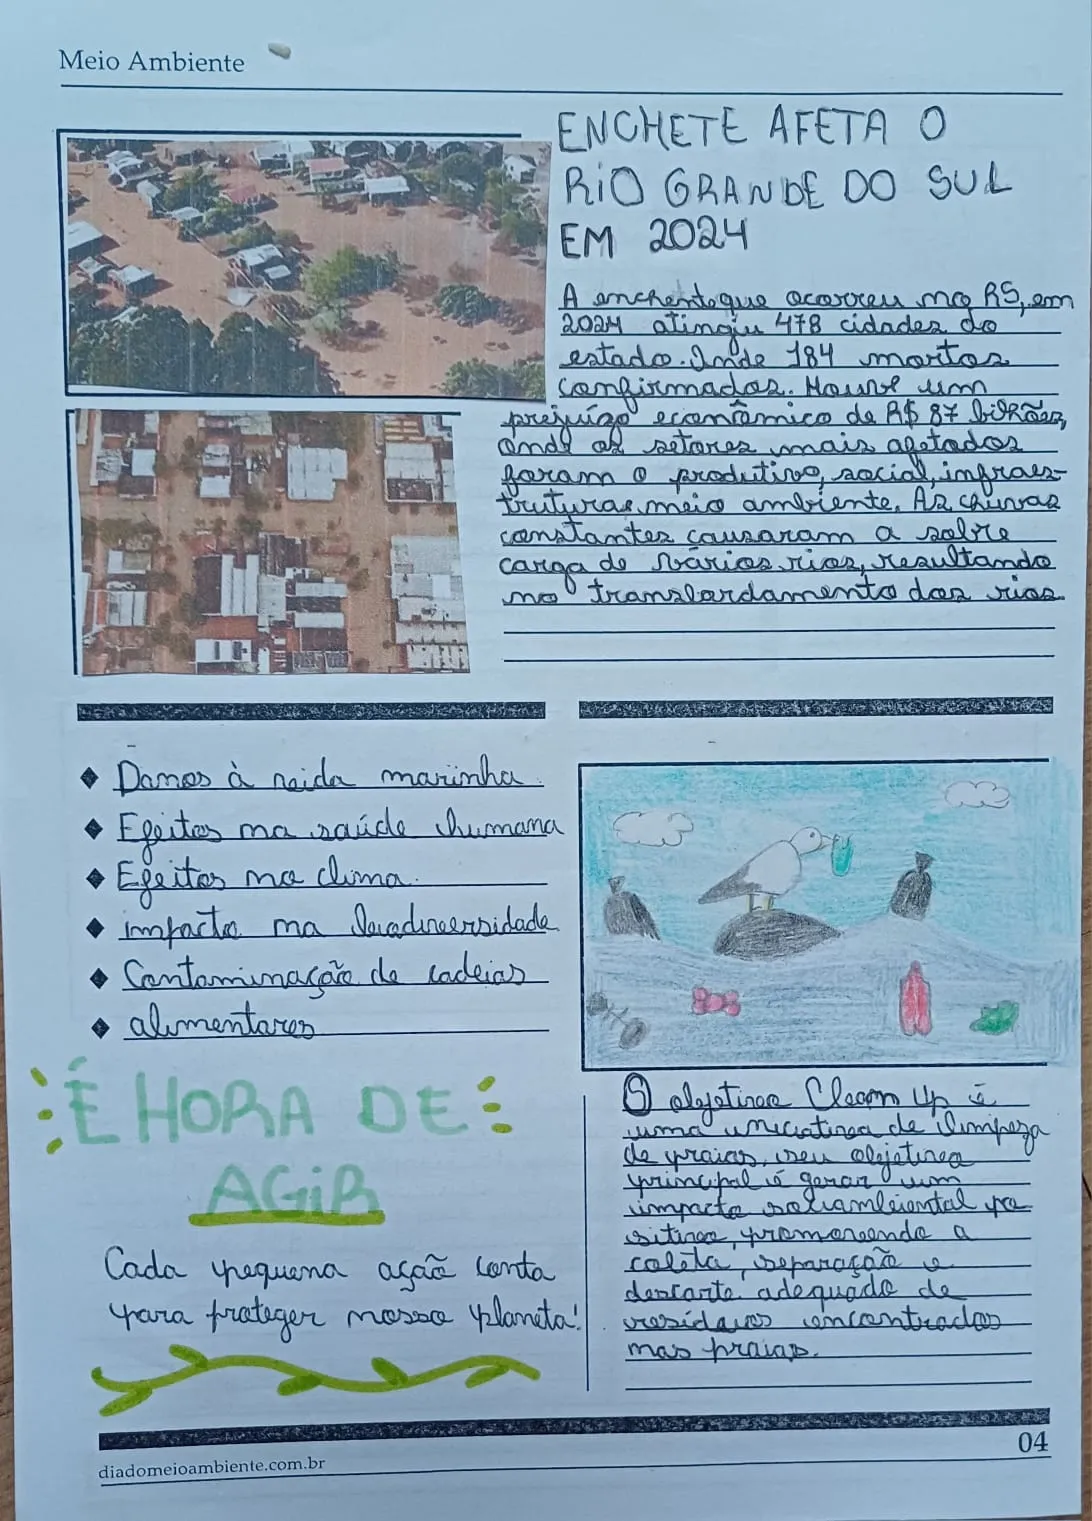 Meio Ambiente
ENCHETE AFETA O
RIO GRANDE DO SUL
EM 2024
A enchente que ocorreu no RS, em
2024 atingiu 478 cidades do
estado. Onde 184 mortos
confirmados. Houve um
prejuízo econômico de R$ 87 bilhões,
onde os setores mais afetados
foram o produtivo, social, infraes-
truturas meio ambiente. As chuvas
constantes causaram a sobre
carga de vários rios, resultando
no transbordamento dos rios.
Danos à vida marinha.
Efeitos na saúde humana
Efeitos no clima.
impacto na
Contaminação de cadeias
alimentares
É HORA DE
AGIR
Cada pequena ação conta
para proteger nosso planeta!
O objetivo Clean Up é
uma iniciativa de limpeza
de praias, seu objetivo
principal é gerar um
impacto socioambiental po
sitivo, promovendo a
coleta, separação e
descarte adequado de
resíduos encontrados
nas praias.
04
diadomeioambiente.com.br